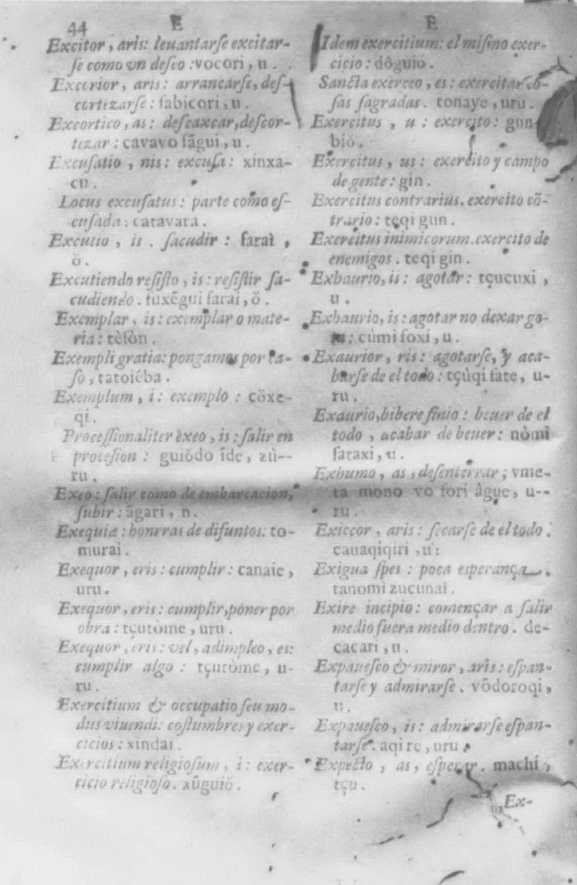 44 E
Excitor, aris: leuantarſe excitar-
ſe como vn deſeo: vocori, u.
Excorior, aris: arrancarſe, deſ-
cortezarſe: ſabicori, u.
Excortico, as: deſcaxcar, deſcor-
tezar: cavavo ſāgui, u.
Excuſatio, nis: excuſa: xinxa-
cu.
Locus excuſatus: parte como eſ-
cuſada: catavata.
Excutio, is. ſacudir: ſaraî,
ŏ.
Excutiendo reſiſto, is: reſiſtir ſa-
cudiendo. tuxēgui ſarai, ŏ.
Exemplar, is: exemplar o mate-
ria: tèſòn.
Exempli gratia: pongamos por ca-
ſo, tatoiéba.
Exemplum, i: exemplo: cŏxe-
qi.
Proceſſionaliter èxeo, is: ſalir en
proceſion: guiŏdo îde, zù--
ru.
Exeo: ſalir como de embarcacion,
ſubir: āgari, u.
Exequiæ: honrras de difuntos. to-
murai.
Exequor, eris: cumplir: canaie,
uru.
Exequor, eris: cumplir, poner por
obra: tçutòme, uru.
Exequor, eris: vel, adimpleo, es:
cumplir algo: tçutòme, u-
ru.
Exercitium & occupatio ſeu mo-
dus viuendi: coſtumbres y exer-
cicios: xindai.
Exercitium religioſum, i: exer-
ticio religioſo. xŭguiŏ.
E
Idem exercitium: el miſmo exer-
cicio: dŏguio.
Sancta exerceo, es: exercitar co-
ſas ſagradas. tonaye, uru.
Exercitus, u: exercito: gun-
biŏ.
Exercitus, us: exercito y campo
de gente: gin.
Exercitus contrarius. exercito cō-
trario: teqi gun.
Exercitus inimicorum. exercito de
enemigos. teqi gin.
Exhaurio, is: agotar: tçucuxi,
u.
Exhaurio, is: agotar no dexar go-
ta: cùmi foxi, u.
Exaurior, ris: agotarſe, y aca-
barſe de el todo: tçùqi fate, u-
ru.
Exaurio, bibere finio: beuer de el
todo, acabar de beuer: nòmi
faraxi, u.
Exhumo, as, deſenterrar; vme-
ta mono vo fori āgue, u--
ru.
Exiccor, aris: ſecarſe de el todo.
cauaqiqiri, u:
Exigua ſpes: poca eſperança.
tanomi zucunai.
Exire incipio: començar a ſalir
medio fuera medio dentro. de-
cacari, u.
Expaueſco & miror, aris: eſpan-
tarſe y admirarſe. vŏdoroqi,
u.
Expaueſco, is: admirarſe eſpan-
tarſe. aqi re, uru.
Expecto, as, eſperar. machi,
tçu.
Ex-